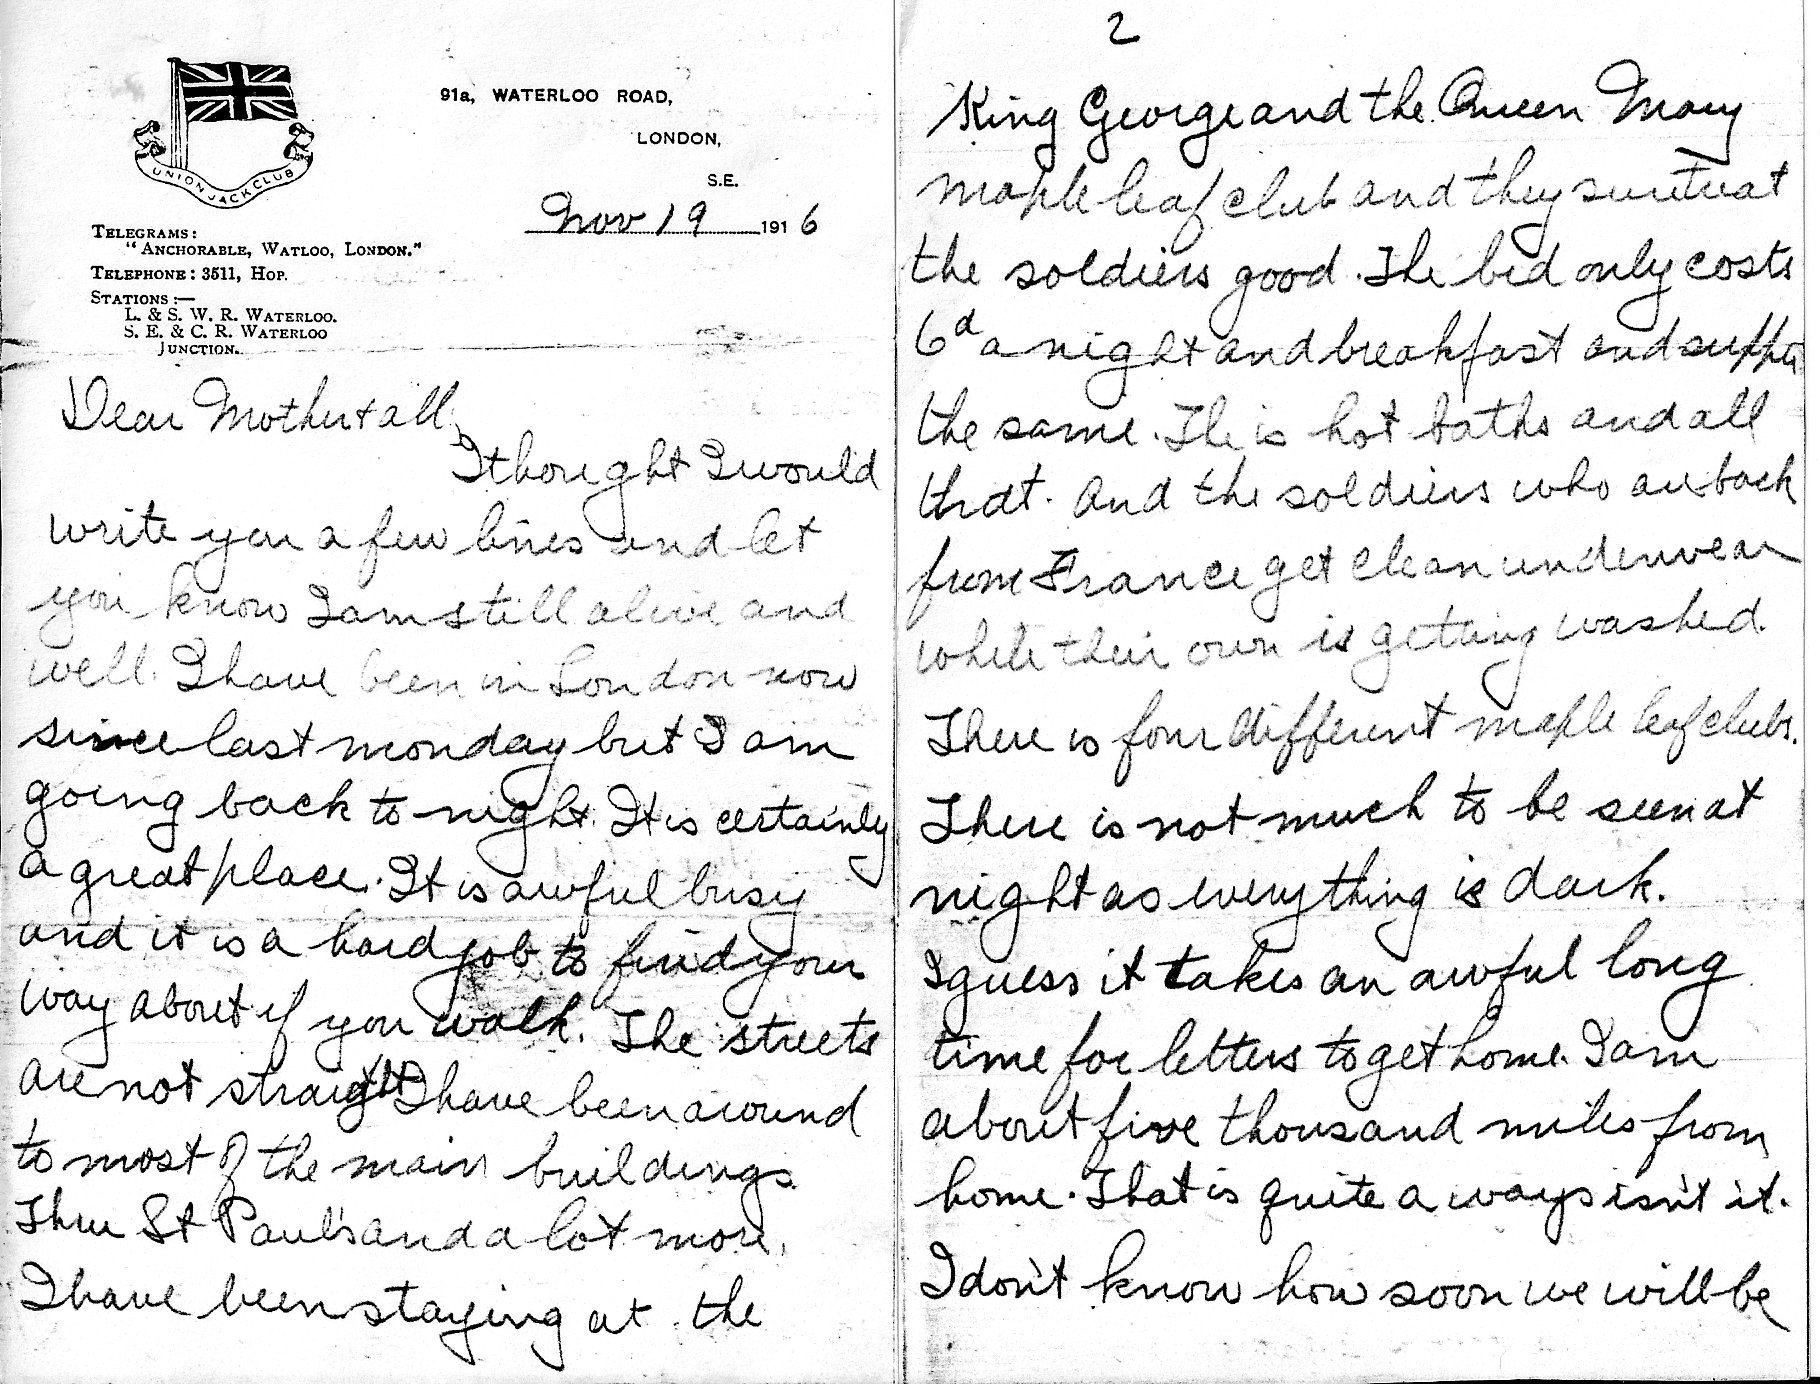 UNION JACK CLUB
91a, WATERLOO ROAD,
LONDON,
S.E.
Nov 19 1916
TELEGRAMS:
"ANCHORABLE, WATLOO, LONDON."
TELEPHONE: 3511, HOP.
STATIONS:—
L. & S. W. R. WATERLOO.
S. E. & C. R. WATERLOO
JUNCTION.
Dear Mother & all,
I thought I would
write you a few lines and let
you know I am still alive and
well. I have been in London now
since last monday but I am
going back to night. It is certainly
a great place. It is awful busy
and it is a hard job to find your
way about if you walk. The streets
are not straight I have been around
to most of the main buildings.
Thru St Paul's and a lot more.
I have been staying at the
2
King George and the Queen Mary
maple leaf club and they sure treat
the soldiers good. The bed only costs
6d a night and breakfast and supper
the same. The is hot baths and all
that. And the soldiers who are back
from France get clean underwear
while their own is getting washed.
There is four different maple leaf clubs.
There is not much to be seen at
night as everything is dark.
I guess it takes an awful long
time for letters to get home. I am
about five thousand miles from
home. That is quite a ways isn't it.
I don't know how soon we will be